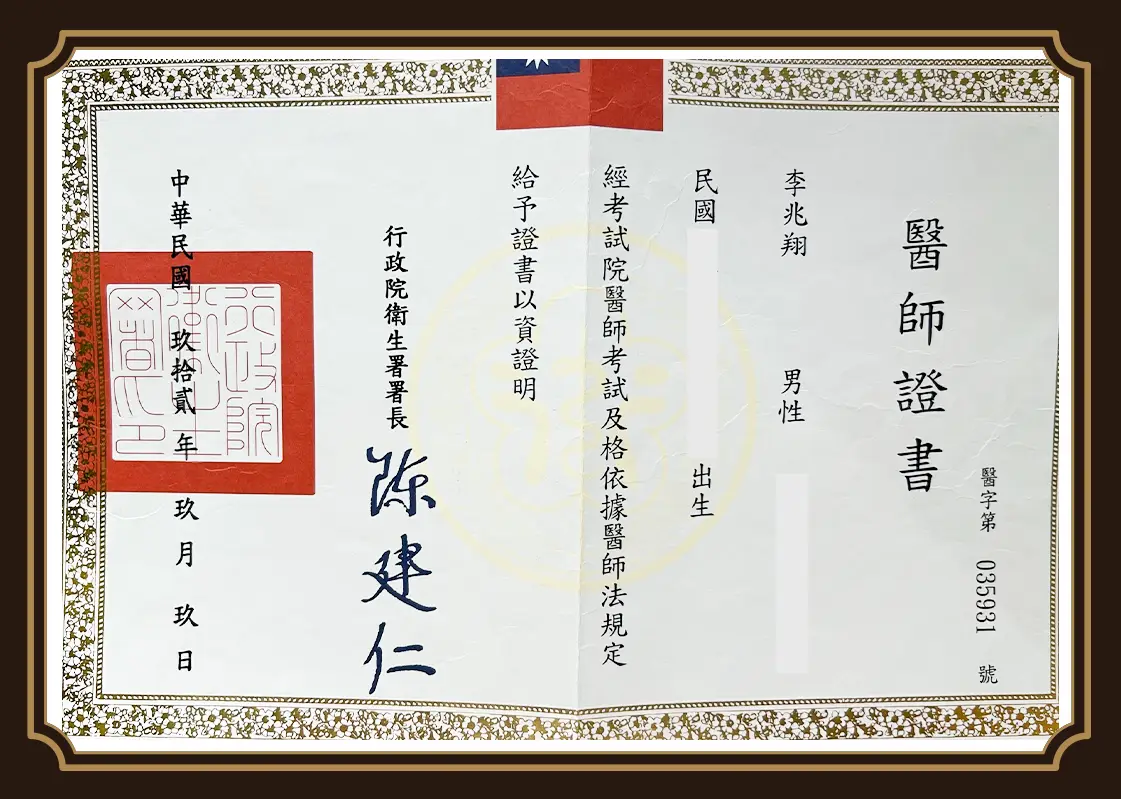 醫字第 035931 號
醫師證書
李兆翔 男性
民國 出生
經考試院醫師考試及格依據醫師法規定
給予證書以資證明
行政院衛生署署長 陳建仁
中華民國 玖拾貳年 玖月 玖日
行政院
衛生
署印